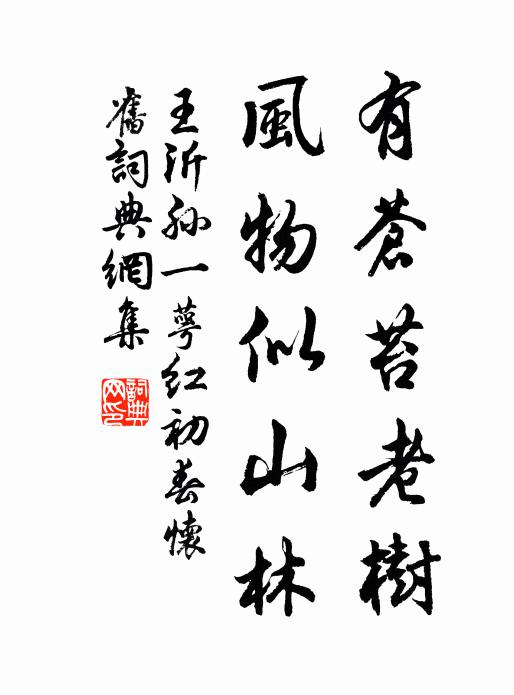 有蒼苔老樹
風物似山林
王沂孫一萼紅初春懷
舊詞典網集
詞典网印